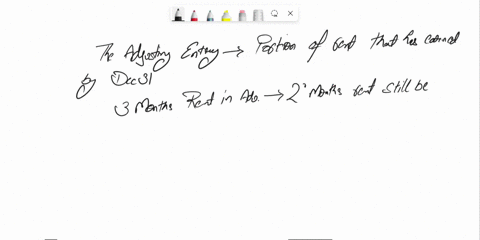 The Adjusting Entry → Portion of rent that has earned
by Dec 31
3 Months Rent in Adv. → 2 Months rent still be